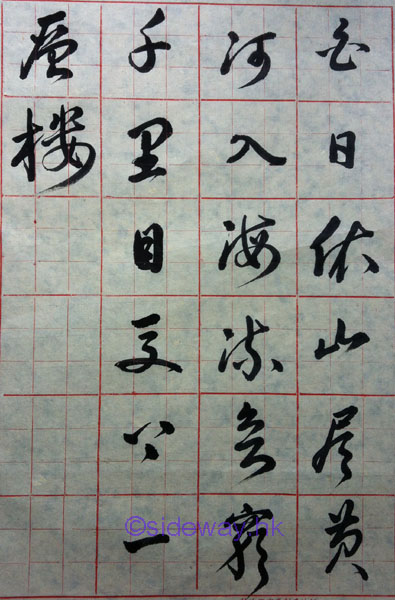 白日依山尽黄
河入海流欲窮
千里目更上一
層楼
©sideway.hk